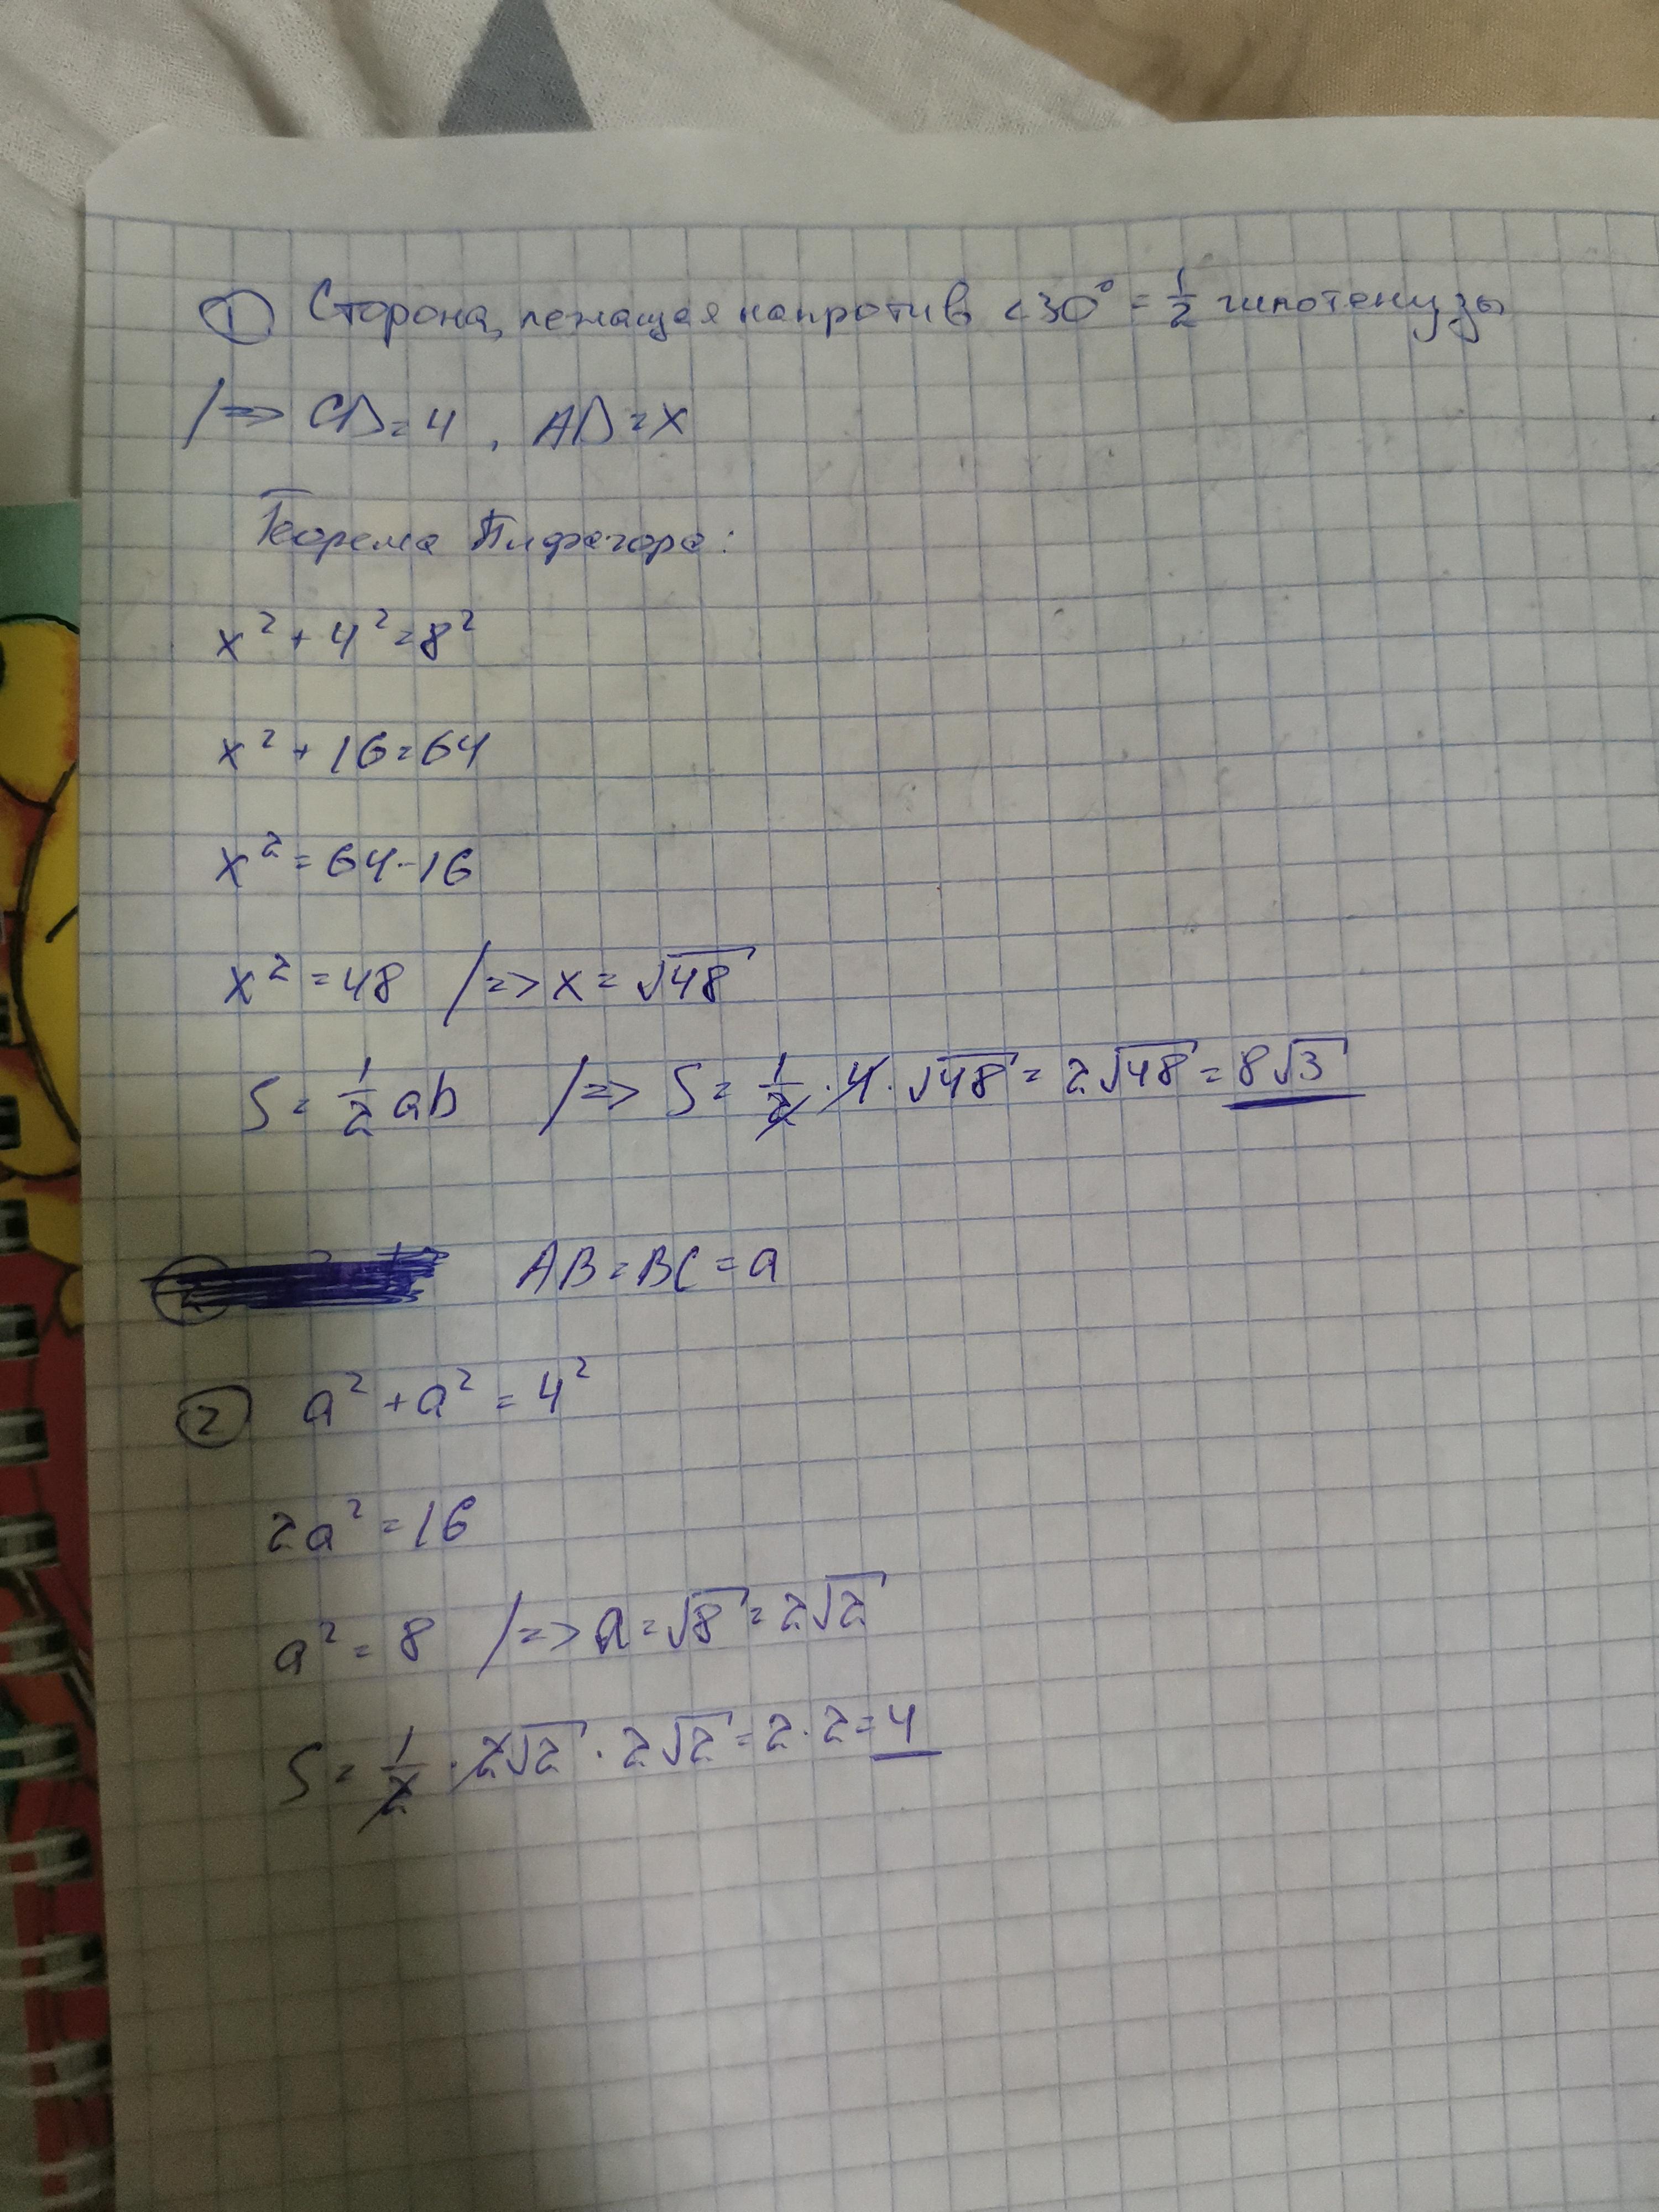 ① Сторона, лежащая напротив <30° = 1/2 гипотенузы
/=> CD = 4, AD = x
Теорема Пифагора:
x² + 4² = 8²
x² + 16 = 64
x² = 64 - 16
x² = 48 /=> x = √48
S = 1/2 ab /=> S = 1/2 · 4 · √48 = 2√48 = 8√3
AB = BC = a
② a² + a² = 4²
2a² = 16
a² = 8 /=> a = √8 = 2√2
S = 1/2 · 2√2 · 2√2 = 2 · 2 = 4